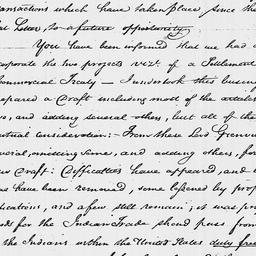 ansactions which have taken place since the
al Letter, to a future opportunity.
You have been informed that we had a
corporate the two projects viz. of a Settlement
Commercial Treaty — I undertook this busine
epared a Draft including most of the articles
, and adding several others, but all of the
utual consideration: — From these Lord Grenvi
veral, omitting some, and adding others, for
w Draft: Difficulties have appeared, and
s have been removed, some lessened by prop
ications, and a few still remain; it was pr
ods for the Indian Trade should pass from
the Indians within the United States duty free